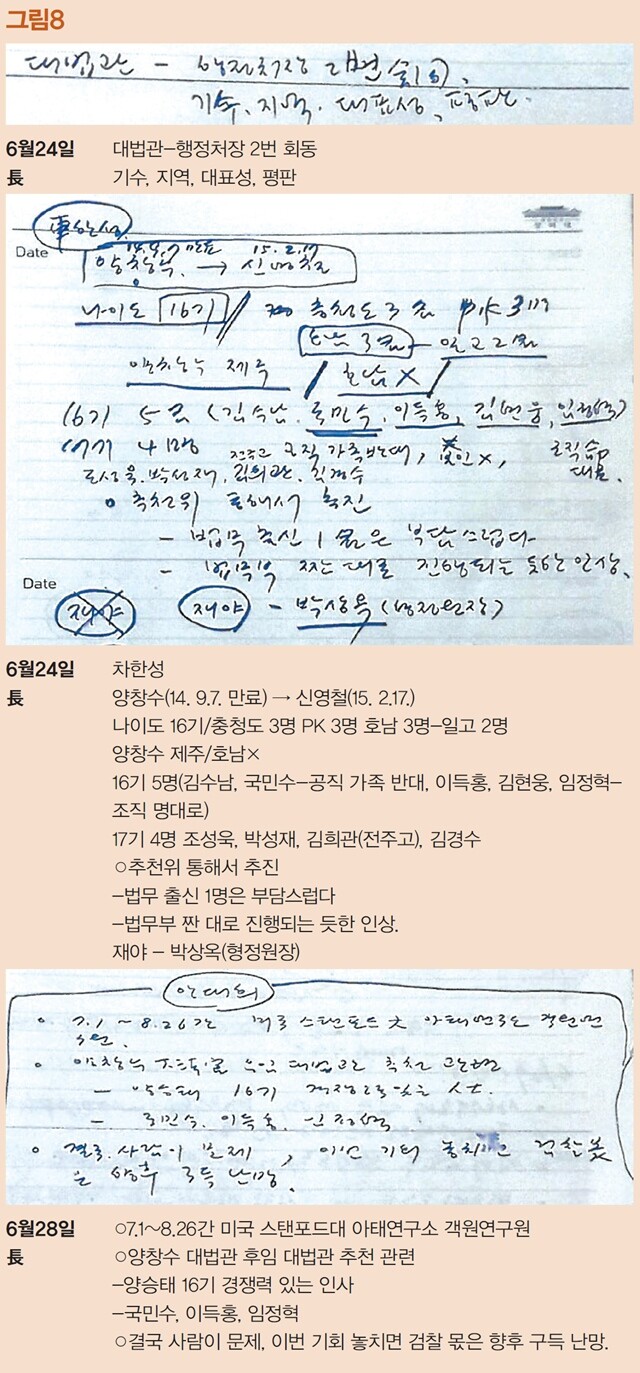 그림8
대법관 – 행정처장 2번 회동
기수, 지역, 대표성, 평판
6월24일 대법관–행정처장 2번 회동
長 기수, 지역, 대표성, 평판
車한성
Date 14. 9. 7 만료 15. 2. 17
양창수 → 신영철
나이도 16기 / 충청도 3명 PK 3명
호남 3명 – 일고 2명
양창수 제주 / 호남 X
16기 5명 (김수남, 국민수, 이득홍, 김현웅, 임정혁)
17기 4명 전주고 공직 가족 반대
조성욱, 박성재, 김희관, 김경수
○ 추천위 통해서 추진
– 법무 출신 1명은 부담스럽다
– 법무부 짠 대로 진행되는 듯한 인상.
Date
재야 재야 – 박상옥 (형정원장)
6월24일 차한성
長 양창수(14. 9.7. 만료) → 신영철(15. 2.17.)
나이도 16기/충청도 3명 PK 3명 호남 3명–일고 2명
양창수 제주/호남×
16기 5명(김수남, 국민수–공직 가족 반대, 이득홍, 김현웅, 임정혁–
조직 명대로)
17기 4명 조성욱, 박성재, 김희관(전주고), 김경수
○추천위 통해서 추진
–법무 출신 1명은 부담스럽다
–법무부 짠 대로 진행되는 듯한 인상.
재야 – 박상옥(형정원장)
안대희
○ 7.1 ~ 8.26간 미국 스탠포드大 아태연구소 객원연
구원.
○ 양창수 후임 대법관 추천 관련
– 양승태 16기 경쟁력 있는 人士.
– 국민수, 이득홍, 임정혁.
○ 결국 사람이 문제, 이번 기회 놓치면 검찰 몫
은 향후 구득 난망.
6월28일 ○7.1~8.26간 미국 스탠포드대 아태연구소 객원연구원
長 ○양창수 대법관 후임 대법관 추천 관련
–양승태 16기 경쟁력 있는 인사
–국민수, 이득홍, 임정혁
○결국 사람이 문제, 이번 기회 놓치면 검찰 몫은 향후 구득 난망.